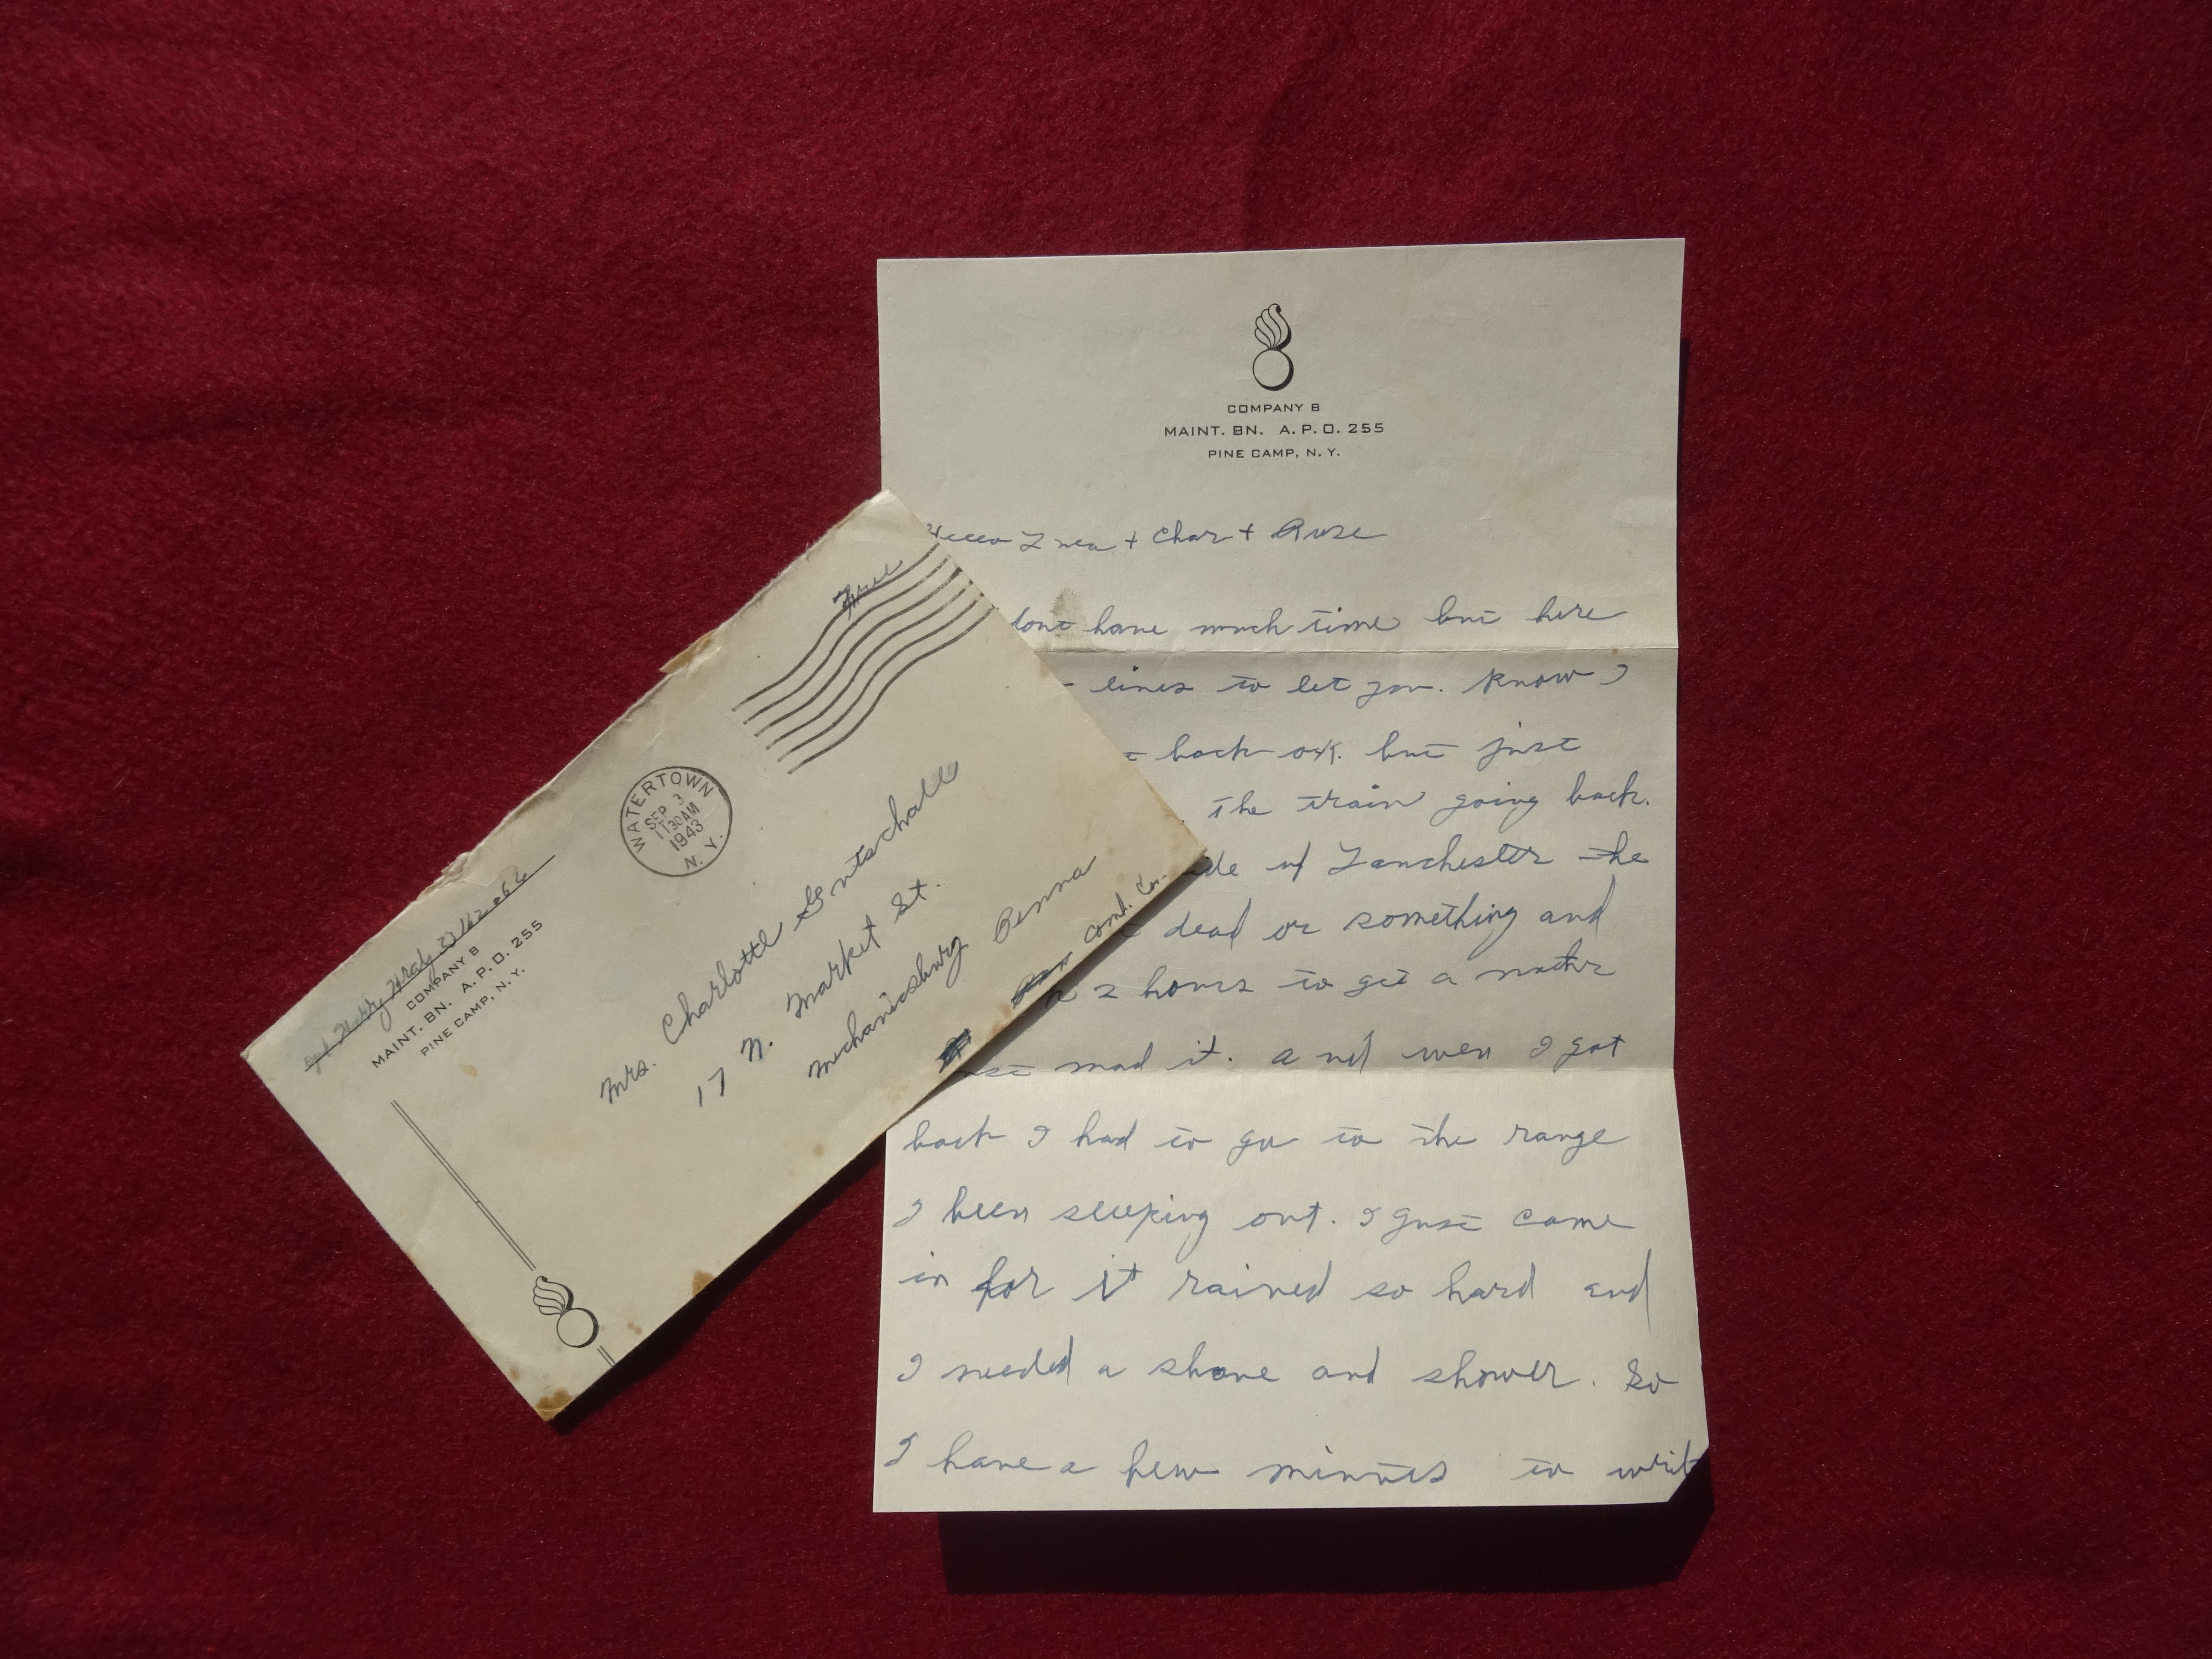 COMPANY B
MAINT. BN. A. P. O. 255
PINE CAMP, N. Y.
+ Char + Rose
dont have much time but here
lines to let you. Know I
back o.K. but just
the train going back.
of Lanchester the
dead or something and
2 hours to get a
mad it. and wen I got
back I had to go to the range
I been sleeping out. I just came
in for it rained so hard and
I needed a shave and shower. So
I have a few minutes to writ
Free
WATERTOWN
SEP 3
11 30 AM
1943
N. Y.
COMPANY B
MAINT. BN. A. P. O. 255
PINE CAMP, N. Y.
Mrs. Charlotte Gentschall
17 N. Market St.
Mechanicsburg Penna
Cumb. Co.